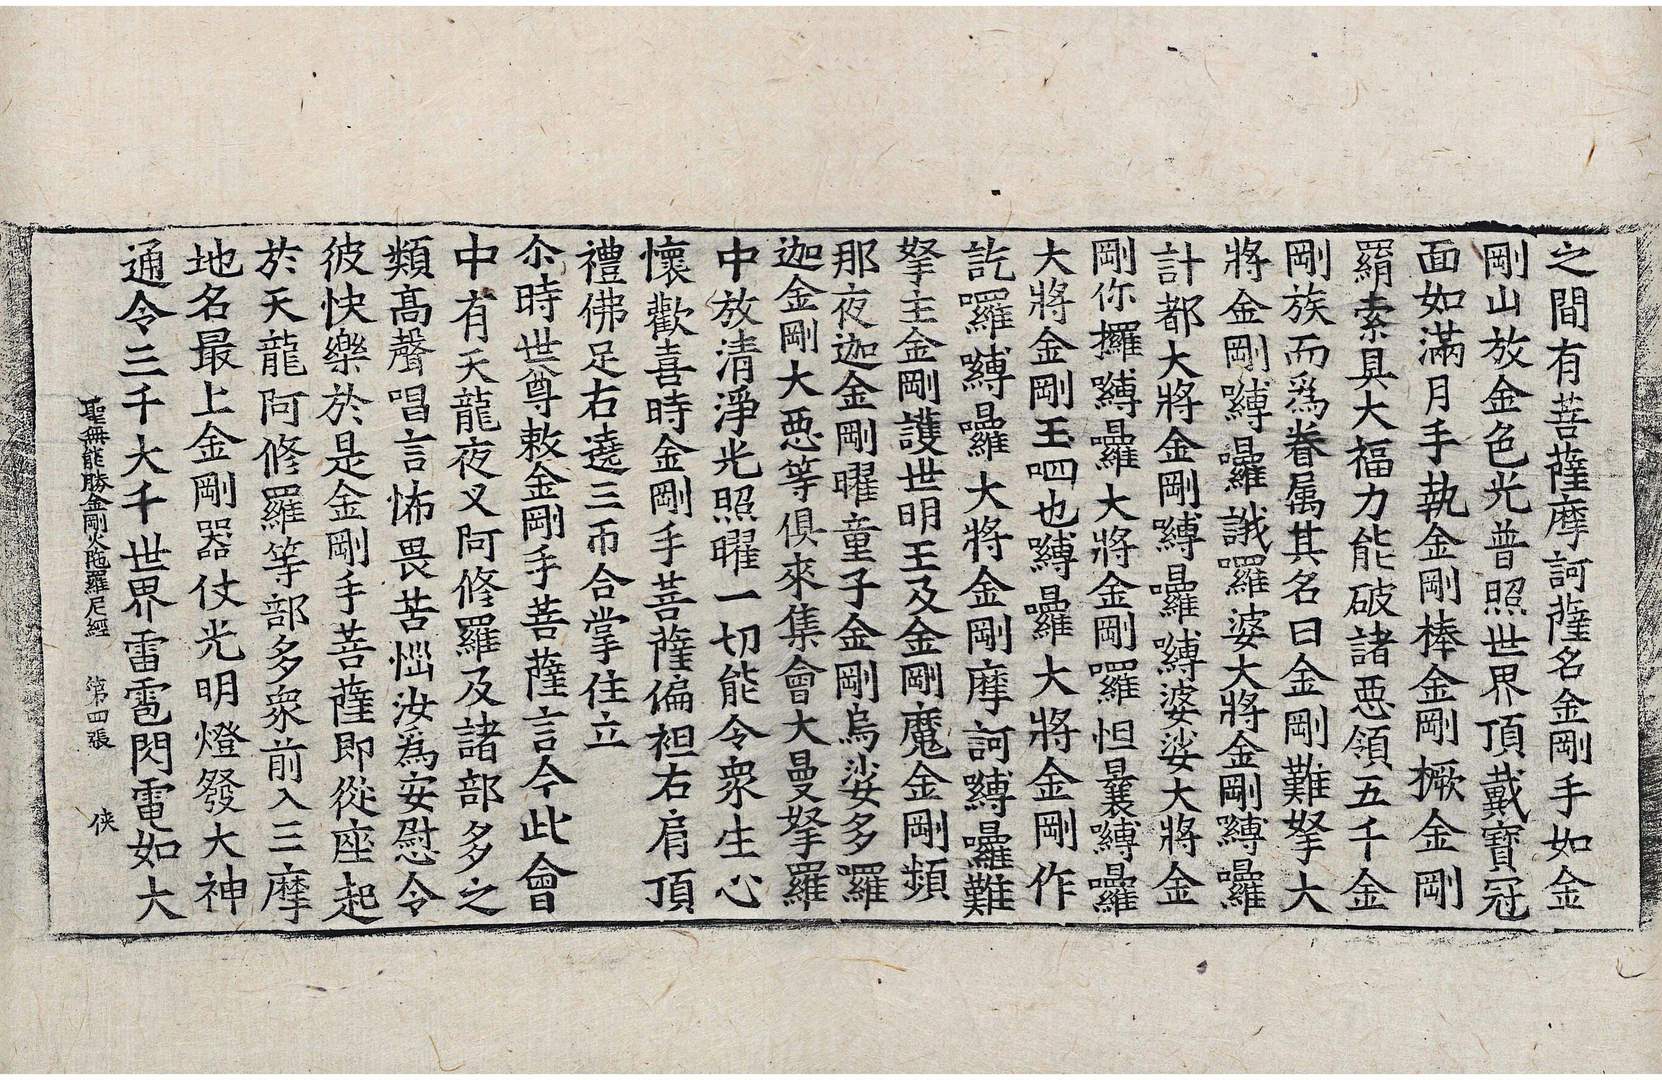 之間有菩薩摩訶薩名金剛手如金
剛山放金色光普照世界頂戴寶冠
面如滿月手執金剛棒金剛橛金剛
羂索具大福力能破諸惡領五千金
剛族而爲眷属其名曰金剛難拏大
將金剛嚩囉誐囉婆大將金剛嚩囉
計都大將金剛嚩囉嚩娑娑大將金
剛你攞嚩囉大將金剛囉怛曩嚩囉
大將金剛王呬也嚩囉大將金剛作
訖囉嚩囉大將金剛摩訶嚩囉難
拏主金剛護世明王及金剛魔金剛頻
那夜迦金剛曜童子金剛烏娑多囉
迦金剛大惡等俱來集會大曼拏羅
中放清淨光照曜一切能令衆生心
懷歡喜時金剛手菩薩偏袒右肩頂
禮佛足右遶三帀合掌住立
尒時世尊敕金剛手菩薩言今此會
中有天龍夜叉阿修羅及諸部多之
類高聲唱言怖畏苦惱汝為安慰令
彼快樂於是金剛手菩薩即從座起
於天龍阿修羅等部多衆前入三摩
地名最上金剛器仗光明燈發大神
通令三千大千世界雷雹閃電如大
聖無能勝金剛火陁羅尼經 第四張 俠